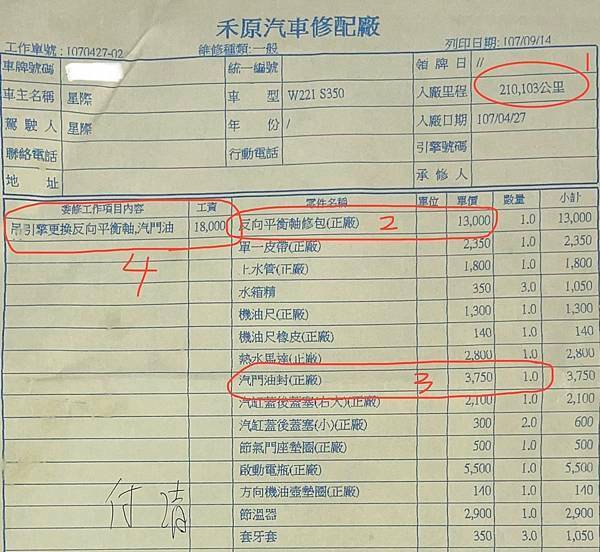 禾原汽車修配廠
工作單號：1070427-02 維修種類:一般 列印日期: 107/09/14
車牌號碼 統一編號 領牌日 // 1
車主名稱 星際 車型 W221 S350 入廠里程 210,103公里
駕駛人 星際 年份 / 入廠日期 107/04/27
聯絡電話 行動電話 引擎號碼
地址 承修人
委修工作項目內容 工資 零件名稱 單位 單價 數量 小計
吊引擎更換反向平衡軸,汽門油 18,000 反向平衡軸修包(正廠) 2 13,000 1.0 13,000
單一皮帶(正廠) 2,350 1.0 2,350
4 上水管(正廠) 1,800 1.0 1,800
水箱精 350 3.0 1,050
機油尺(正廠) 1,300 1.0 1,300
機油尺橡皮(正廠) 140 1.0 140
熱水馬達(正廠) 2,800 1.0 2,800
汽門油封(正廠) 3 3,750 1.0 3,750
汽缸蓋後蓋塞(右大)(正廠) 2,100 1.0 2,100
汽缸蓋後蓋塞(小)(正廠) 300 2.0 600
節氣門座墊圈(正廠) 500 1.0 500
啟動電瓶(正廠) 5,500 1.0 5,500
方向機油壺墊圈(正廠) 140 1.0 140
付清 節溫器 2,900 1.0 2,900
套牙套 350 3.0 1,050